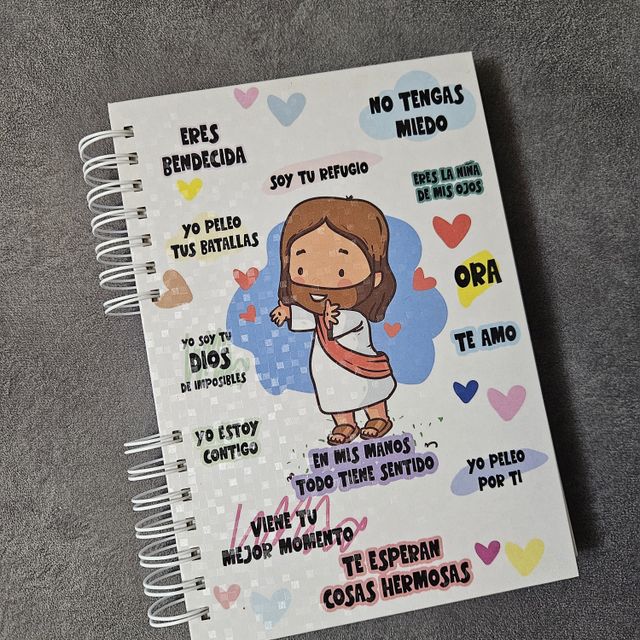 NO TENGAS
MIEDO
ERES
BENDECIDA
SOY TU REFUGIO
ERES LA NIÑA
DE MIS OJOS
YO PELEO
TUS BATALLAS
ORA
YO SOY TU
DIOS
DE IMPOSIBLES
TE AMO
YO ESTOY
CONTIGO
EN MIS MANOS
TODO TIENE SENTIDO
YO PELEO
POR TI
VIENE TU
MEJOR MOMENTO
TE ESPERAN
COSAS HERMOSAS